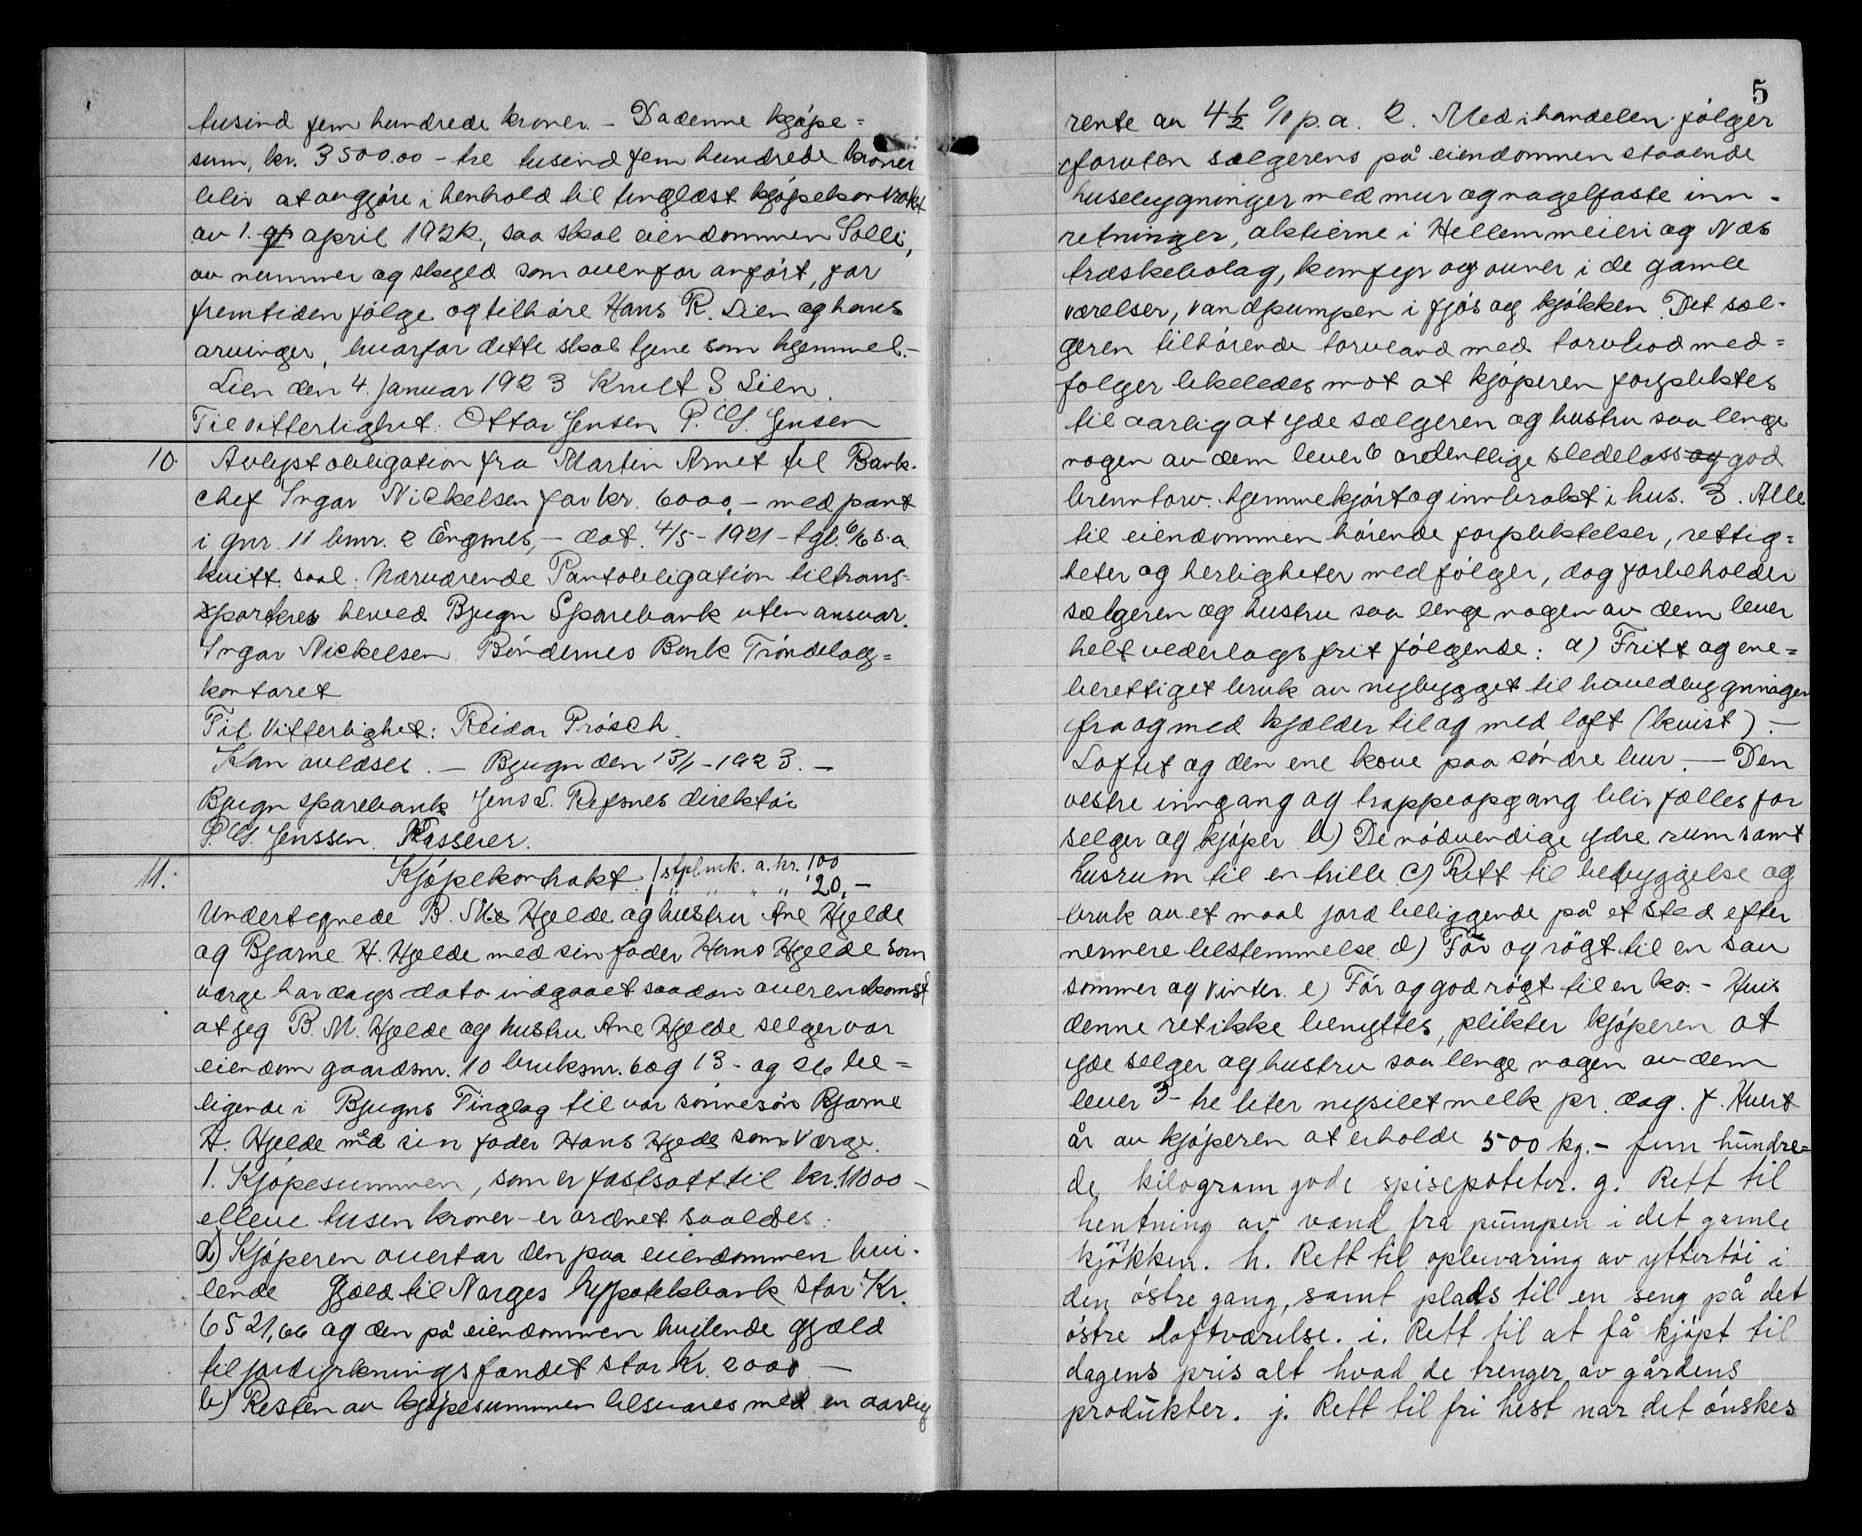 tusind fem hundrede kroner. – Da denne kjøpe=
sum, kr. 3500.00 – tre tusind fem hundrede kroner
blir at avgjøre i henhold til tinglæst kjøpekontrakt
av 1. april 192k, saa skal eiendommen Solli,
av nummer og skyld som ovenfor anført, for
fremtiden følge og tilhøre Hans R. Lien og hans
arvinger, hvorfor dette skal tjene som hjemmel. –
Lien den 4. januar 1923 Knut S Lien.
Til vitterlighet: Ottar Jensen P. G. Jensen
10. Avlyst obligation fra Martin Arnet til Bank-
chef Ingar Nickelsen for kr. 6000,– med pant
i gnr. 11 bnr. 2 Engnes, – dat. 4/5 – 1921 – tgl. 6/6 s.a.
kvitt. saal. Nærværende Pantobligation tiltrans-
sporteres herved Bjugn Sparebank uten ansvar.
Ingar Nickelsen. Bøndernes Bank Trøndelag=
kontoret
Til Vitterlighet: Reidar Prøsch.
Kan avlæses. – Bjugn den 13/1 – 1923. –
Bjugn sparebank Jens L. Refsnes direktør
P. G. Jenssen. Kasserer.
11. Kjøpekontrakt. 1 stplmk. a. kr. 100
" " " " 20.–
Undertegnede B. M. Hjelde og hustru Ane Hjelde
og Bjarne H. Hjelde med sin fader Hans Hjelde som
værge har dags dato indgaaet saadan overenskomst
at jeg B. M. Hjelde og hustru Ane Hjelde selger vor
eiendom gaardsnr. 10 bruksnr. 6 og 13 – og 26 be=
ligende i Bjugns Tinglag til vor sønnesøn Bjarne
H. Hjelde med sin fader Hans Hjede som Værge.
1. Kjøpesummen, som er fastsatt til kr. 11000 –
elleve tusen kroner – er ordnet saaledes:
a) Kjøperen overtar den paa eiendommen hvi-
lende Gjæld til Norges hypotekbank stor Kr.
6521,66 og den på eiendommen hvilende gjæld
til jorddyrkningsfondet stor kr. 2000 –
b) Resten av kjøpesummen tilsvares med en aarlig
5
rente av 4 1/2 % p.a. 2. Med i handelen følger
foruten sælgerens på eiendommen staaende
husebygninger med mur og nagelfaste inn-
retninger, aktierne i Hellem meieri og Næs
træskebolag, komfyr og ovner i de gamle
værelser, vandpumpen i fjøs og kjøkken. Det sæl-
geren tilhørende torvland med torvbod med=
følger likeledes mot at kjøperen forpliktes
til aarlig at yde sælgeren og hustru saa lenge
nogen av dem lever 6 ordentlige sledelass og god
brenntorv hjemmekjørt og innbrakt i hus. 3. Alle
til eiendommen hørende forpliktelser, rettig=
heter og herligheter medfølger, dog forbeholder
sælgeren og hustru saa lenge nogen av dem lever
helt vederlagsfrit følgende: a) Fritt og ene=
berettiget bruk av nybygget til hovedbygningen
fra og med kjælder til og med loft (kvist). –
Loftet og den ene kove paa søndre bur. – Den
vestre inngang og trappeopgang blir fælles for
selger og kjøper b) De nødvendige ydre rum samt
husrum til en trille c) Rett til bebyggelse og
bruk av et maal jord beliggende på et sted efter
nermere bestemmelse. d) Fôr og røgt til en sau
sommer og vinter. e) Fôr og god røgt til en ko. – Hvis
denne ret ikke benyttes, plikter kjøperen at
yde selger og hustru saa lenge nogen av dem
lever 3 – tre liter nysilet melk pr. dag. f. Hvert
år av kjøperen at erholde 500 kg. – fem hundre=
de kilogram gode spisepoteter. g. Rett til
hentning av vand fra pumpen i det gamle
kjøkken. h. Rett til opbevaring av yttertøi i
den østre gang, samt plads til en seng på det
østre loftværelse. i. Rett til at få kjøpt til
dagens pris alt hvad de trenger av gårdens
produkter. j. Rett til fri hest når det ønskes